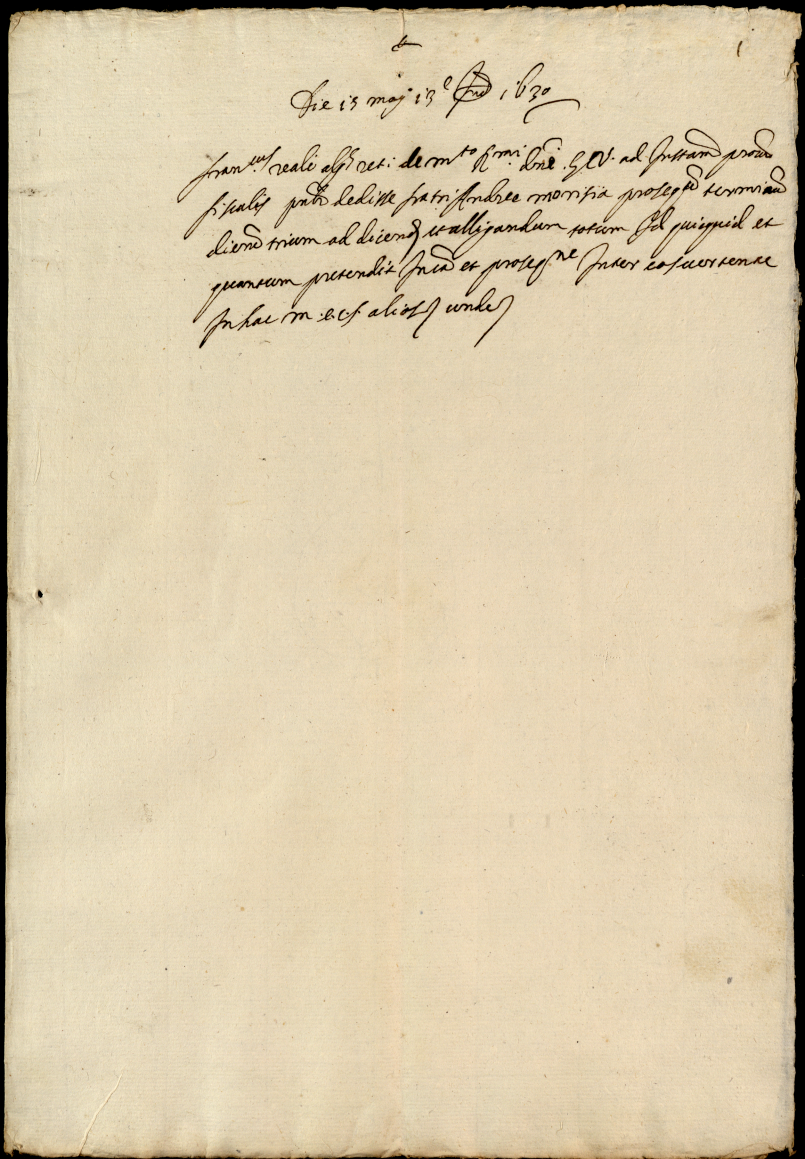 1
Die 13 maij 13e Ind 1630
Fran.cus reali algs ret: de m.to R.mi dni G. V. ad Instam procris
fiscalis dedisse fratri Andree morisia proseqd terminu
dierum trium ad dicend et alligandum totum Id quicquid et
quantum pretendit In ca et proseq.ne Inter eos vertente
In hac m. e. c. f. alios unde